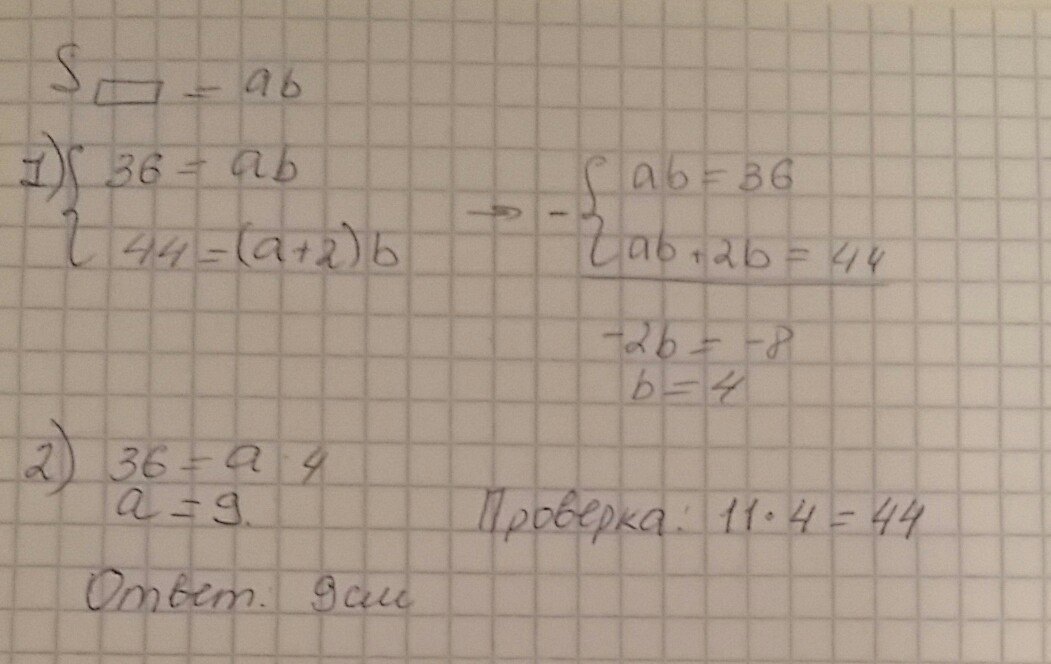 S▭ = ab
1) { 36 = ab
44 = (a+2)b
→ - { ab = 36
ab + 2b = 44
-2b = -8
b = 4
2) 36 = a · 4
a = 9.
Проверка: 11 · 4 = 44
Ответ: 9см